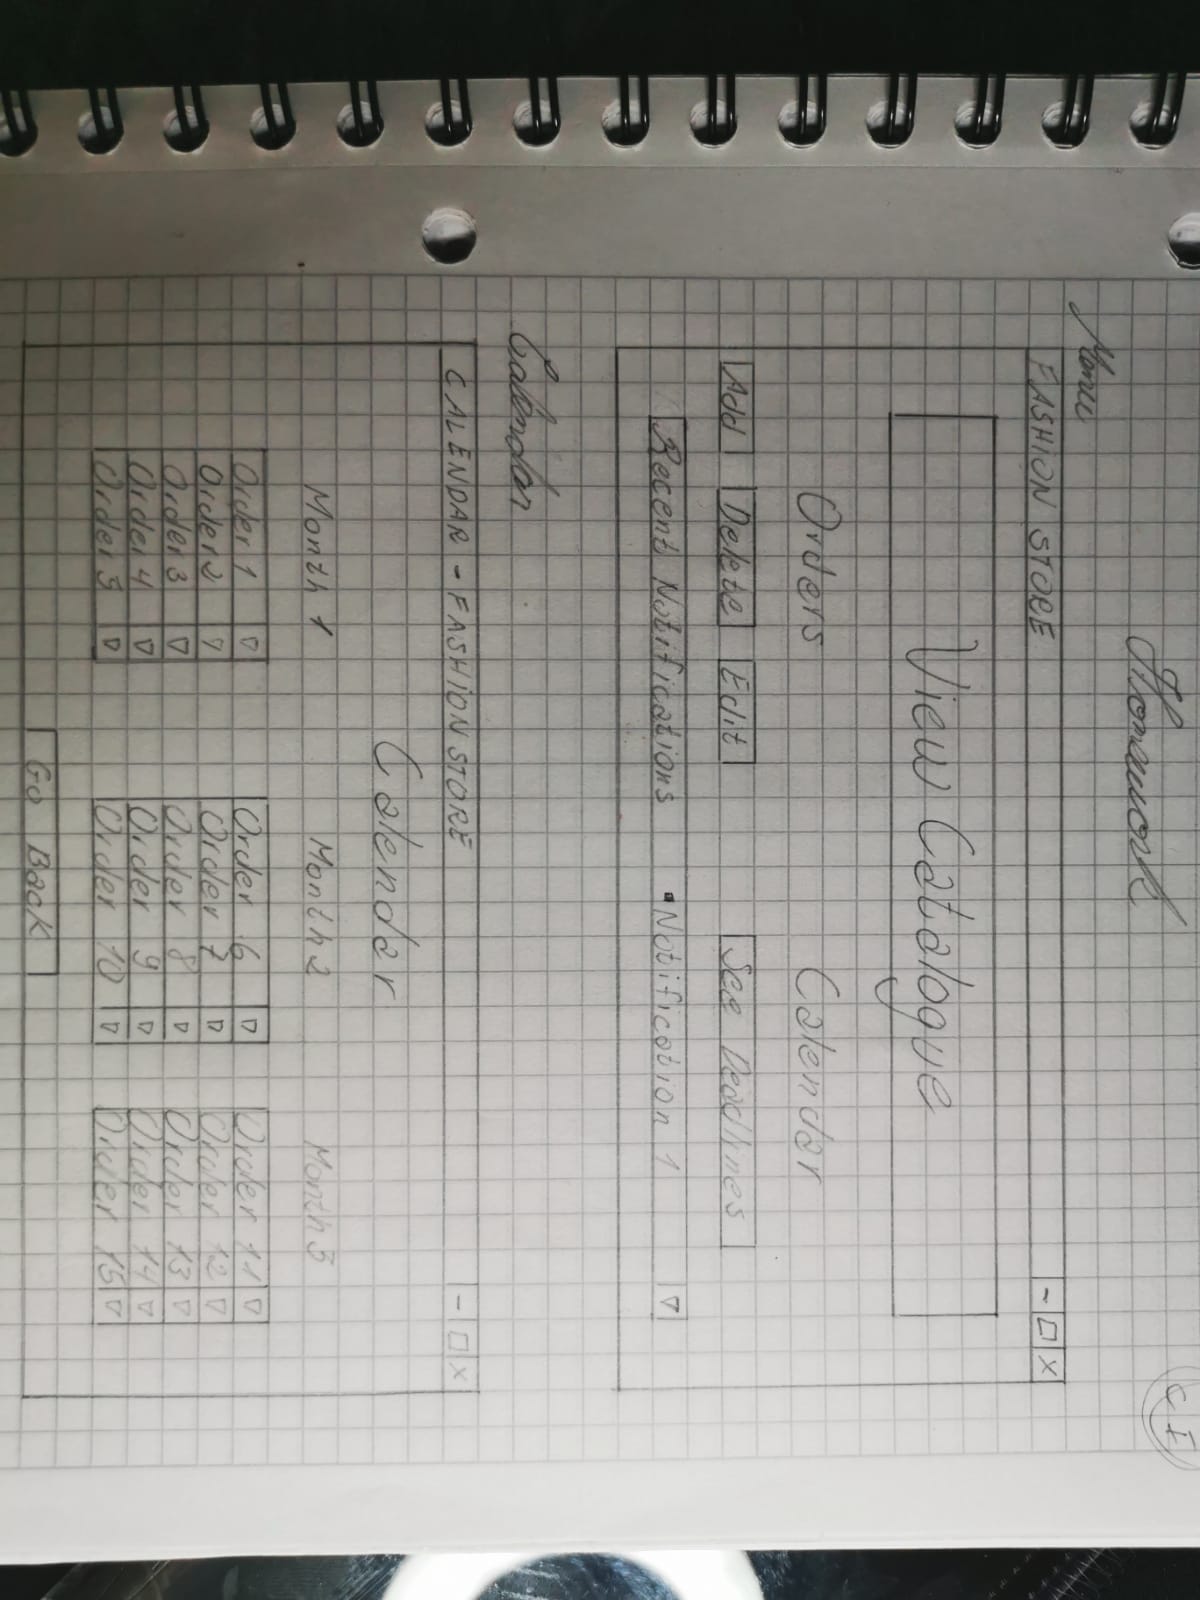 Homework
C I
Menu
FASHION STORE - □ X
View Catalogue
Orders Calendar
Add Delete Edit See Deadlines
Recent Notifications ▪ Notification 1 ▽
Calendar
CALENDAR - FASHION STORE - □ X
Calendar
Month 1 Month 2 Month 3
Order 1 ▽ Order 6 ▽ Order 11 ▽
Order 2 ▽ Order 7 ▽ Order 12 ▽
Order 3 ▽ Order 8 ▽ Order 13 ▽
Order 4 ▽ Order 9 ▽ Order 14 ▽
Order 5 ▽ Order 10 ▽ Order 15 ▽
Go Back